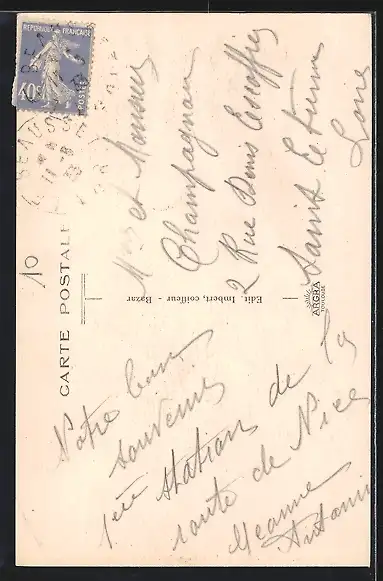 CARTE POSTALE
10
REPUBLIQUE FRANÇAISE
40c
POSTES
BEAUSS
Notre bon
souvenir
1ère station de la
route de Nice
Jeanne
Antonin
Edit. Imbert, coiffeur - Bazar
ARGRA
TOULOUSE
Mme et Monsieur
Champagnon
2 Rue Denis Escoffier
Saint Etienne
Loire